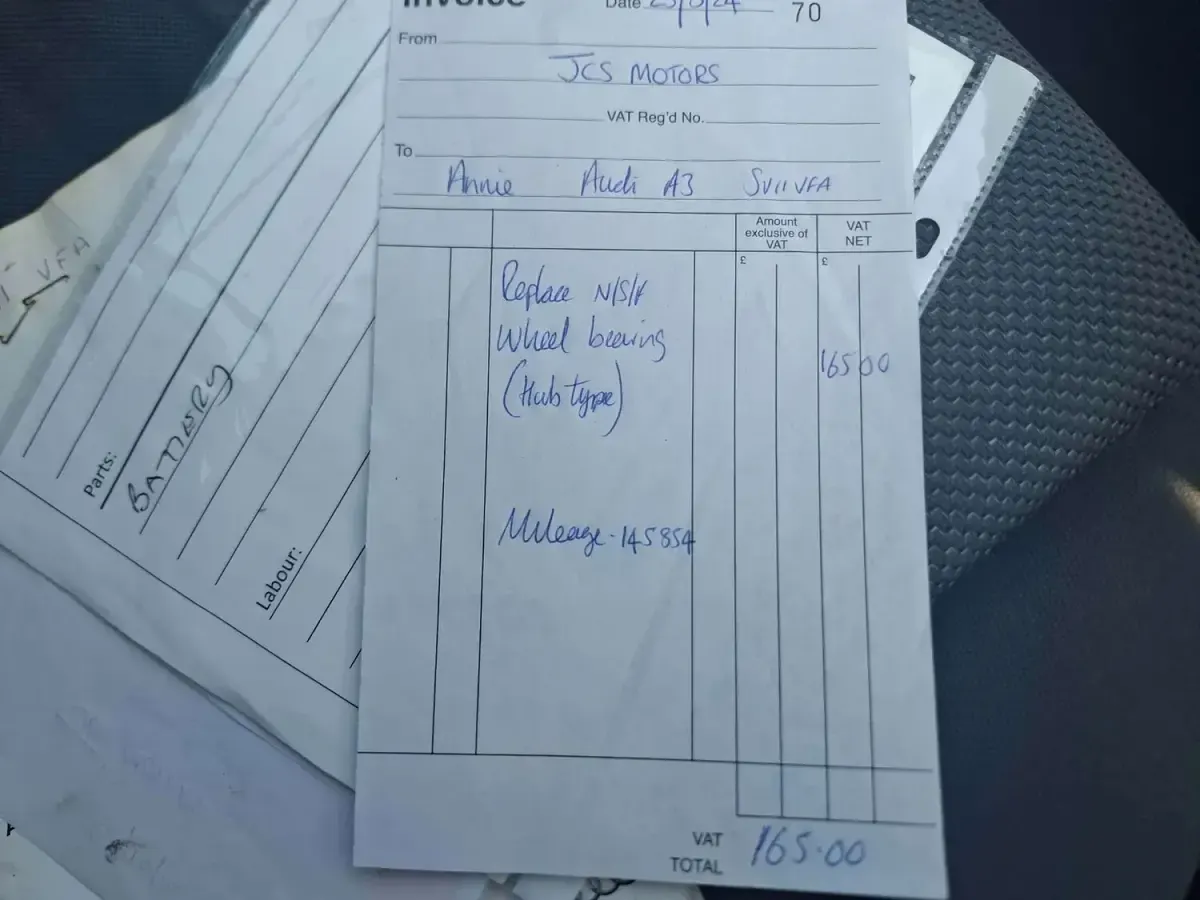 Invoice
Date
70
From
JCS MOTORS
VAT Reg'd No.
To
Annie Audi A3 SV11 VFA
Amount
exclusive of
VAT
VAT
NET
£
£
Replace N/S/F
Wheel bearing
165 00
(Hub type)
Mileage - 145854
VAT
TOTAL
165.00
VFA
Parts:
BATTERY
Labour: